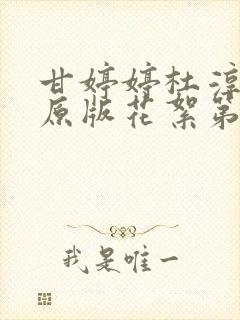 甘婷婷杜淳
原版花絮第
我是唯一